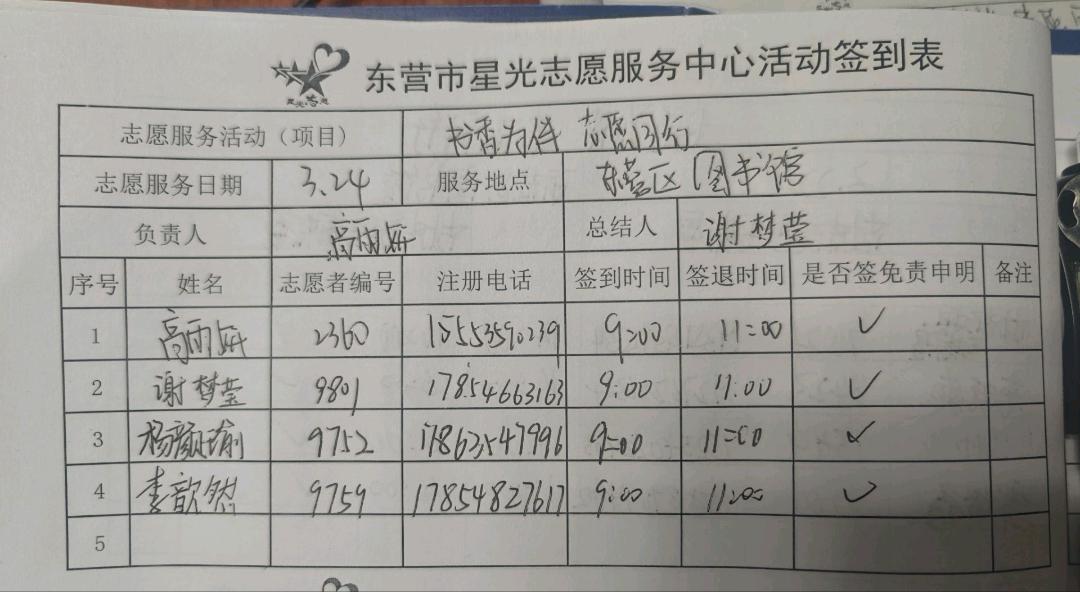 东营市星光志愿服务中心活动签到表
志愿服务活动（项目） 书香为伴 志愿同行
志愿服务日期 3.24 服务地点 东营区图书馆
负责人 高雨妍 总结人 谢梦莹
序号 姓名 志愿者编号 注册电话 签到时间 签退时间 是否签免责申明 备注
1 高雨妍 2360 15553590239 9:00 11:00 ✓
2 谢梦莹 9801 17854663163 9:00 11:00 ✓
3 杨颜瑜 9752 17863547996 9:00 11:00 ✓
4 李歆然 9759 17854827617 9:00 11:00 ✓
5